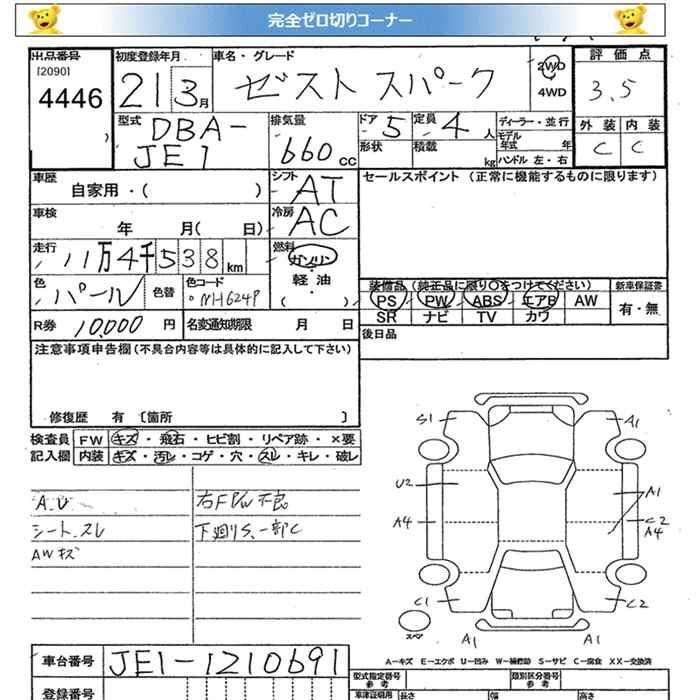 完全ゼロ切りコーナー
出品番号 初度登録年月 車名・グレード 2WD 評価点
[2090]
4446 21 3月 ゼスト スパーク 4WD 3.5
型式 排気量 ドア 定員 ディーラー・並行 外装 内装
DBA- 5 4人 モデル年式 年 C C
JE1 660cc 形状 積載 kg ハンドル 左・右
車歴 シフト セールスポイント(正常に機能するものに限ります)
自家用・( ) AT
車検 冷房
年 月( 日) AC
走行 燃料
11万4千538km ガソリン
色 色替 色コード 軽油 装備品(純正品に限り○をつけてください) 新車保証書
パール NH624P ・( ) PS PW ABS エアB AW 有・無
R券 10,000円 名変通知期限 月 日 SR ナビ TV カワ
注意事項申告欄(不具合内容等は具体的に記入して下さい) 後日品
修復歴 有 〔箇所 〕
検査員 FW キズ・飛石・ヒビ割・リペア跡・×要
記入欄 内装 キズ・汚レ・コゲ・穴・スレ・キレ・破レ
A.U 右FP/W不良
シート.スレ 下廻りS、一部C
AWキズ
S1 A1
U2 A1
A4 C2
A4
C1 C2
スペア A1 A1
A-キズ E-エクボ U-凹み W-補修跡 S-サビ C-腐食 XX-交換済
車台番号 JE1-1210691 型式指定番号 参考 類別区分番号 参考
登録番号 車体証明用 参考 長さ 幅 高さ